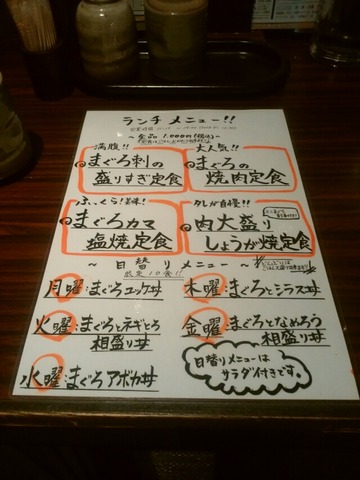 ランチメニュー!!
〜全品 1,000円(税込)〜
満腹!!
まぐろ刺の
盛りすぎ定食
大人気!!
まぐろの
焼肉定食
ふっくら!美味!
まぐろカマ
塩焼定食
タレが自慢!!
肉大盛り
しょうが焼定食
〜日替りメニュー〜
限定10食!!
月曜:まぐろユッケ丼
火曜:まぐろとネギとろ
相盛り丼
水曜:まぐろアボカ丼
木曜:まぐろとシラス丼
金曜:まぐろとなめろう
相盛り丼
日替りメニューは
サラダ付きです。